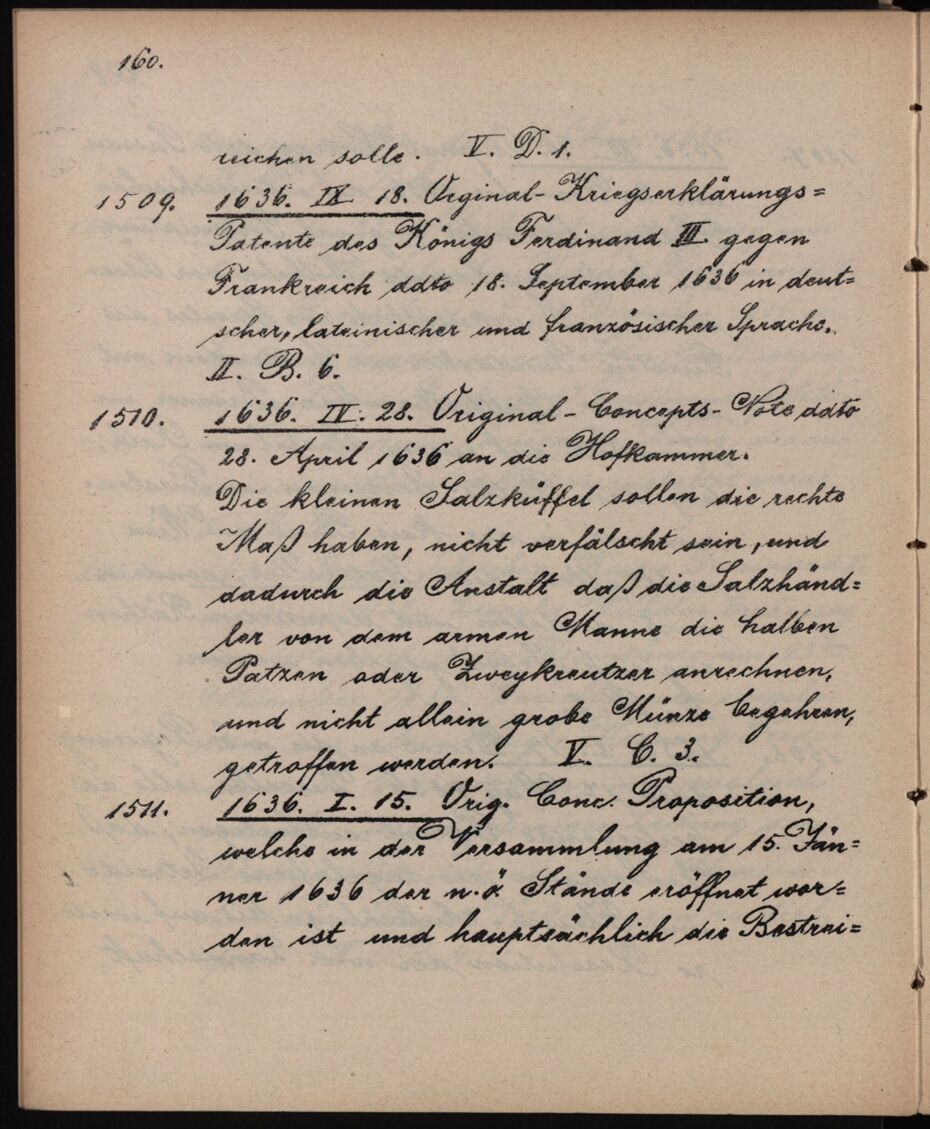 160.
reichen solle. V. D. 1.
1509. 1636. IX 18. Original-Kriegserklärungs=
Patente des Königs Ferdinand III. gegen
Frankreich ddto 18. September 1636 in deut=
scher, lateinischer und französischer Sprache.
II. B. 6.
1510. 1636. IV. 28. Original-Concepts-Note ddto
28. April 1636 an die Hofkammer.
Die kleinen Salzküffel sollen die rechte
Maß haben, nicht verfälscht sein, und
dadurch die Anstalt daß die Salzhänd=
ler von dem armen Manne die halben
Patzen oder Zweykreutzer anrechnen,
und nicht allein grobe Münze begehren,
getroffen werden. V. C. 3.
1511. 1636. I. 15. Orig. Conc. Proposition,
welche in der Versammlung am 15. Jän=
ner 1636 der n.ö. Stände eröffnet wor=
den ist und hauptsächlich die Bestrei=